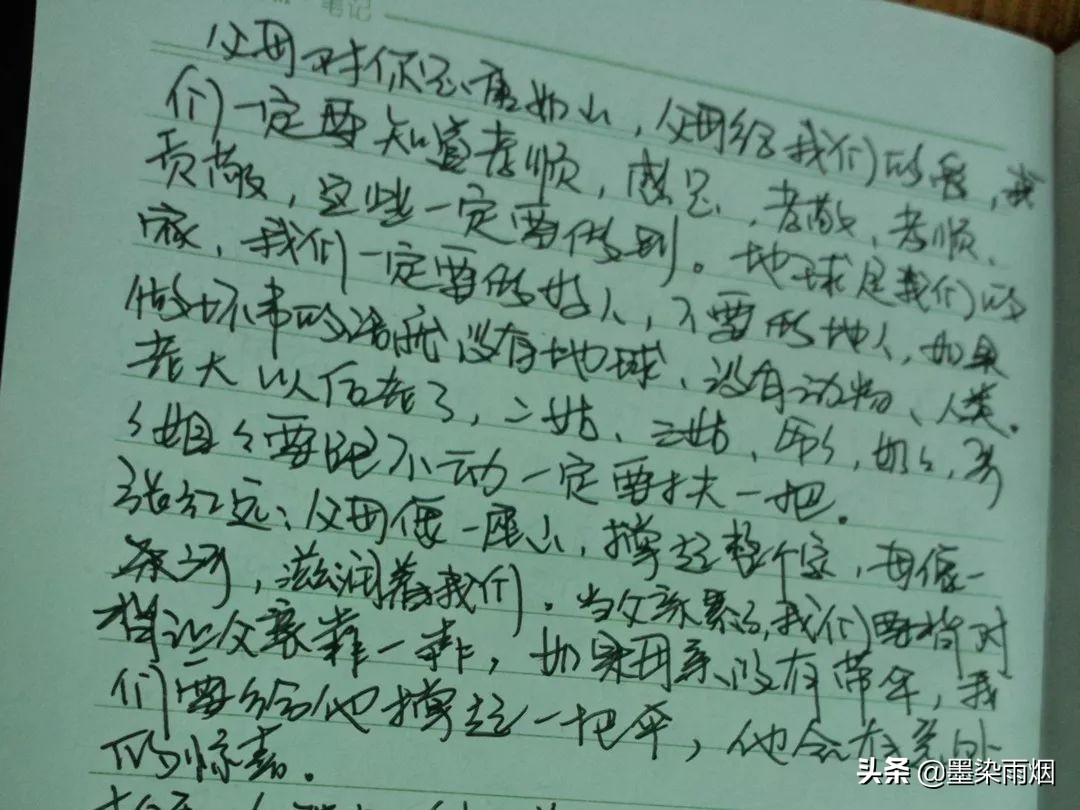 笔记
父母对你恩重如山，父母给我们的爱，我
们一定要知道孝顺，感恩，孝敬，孝顺、
责敬，这些一定要做到。地球是我们的
家，我们一定要做好人，不要做地人，如果
做坏事的话就没有地球、没有动物、人类。
老大以后老了，二姑、三姑，
姐々要跑不动一定要扶一把。
张红远：父母像一座山，撑起整个家，母像一
条河，滋润着我们。当父亲累了，我们要
让父亲靠一靠，如果母亲没有带伞，我
们要给他撑起一把伞，他会有意外
的惊喜。
头条 @墨染雨烟